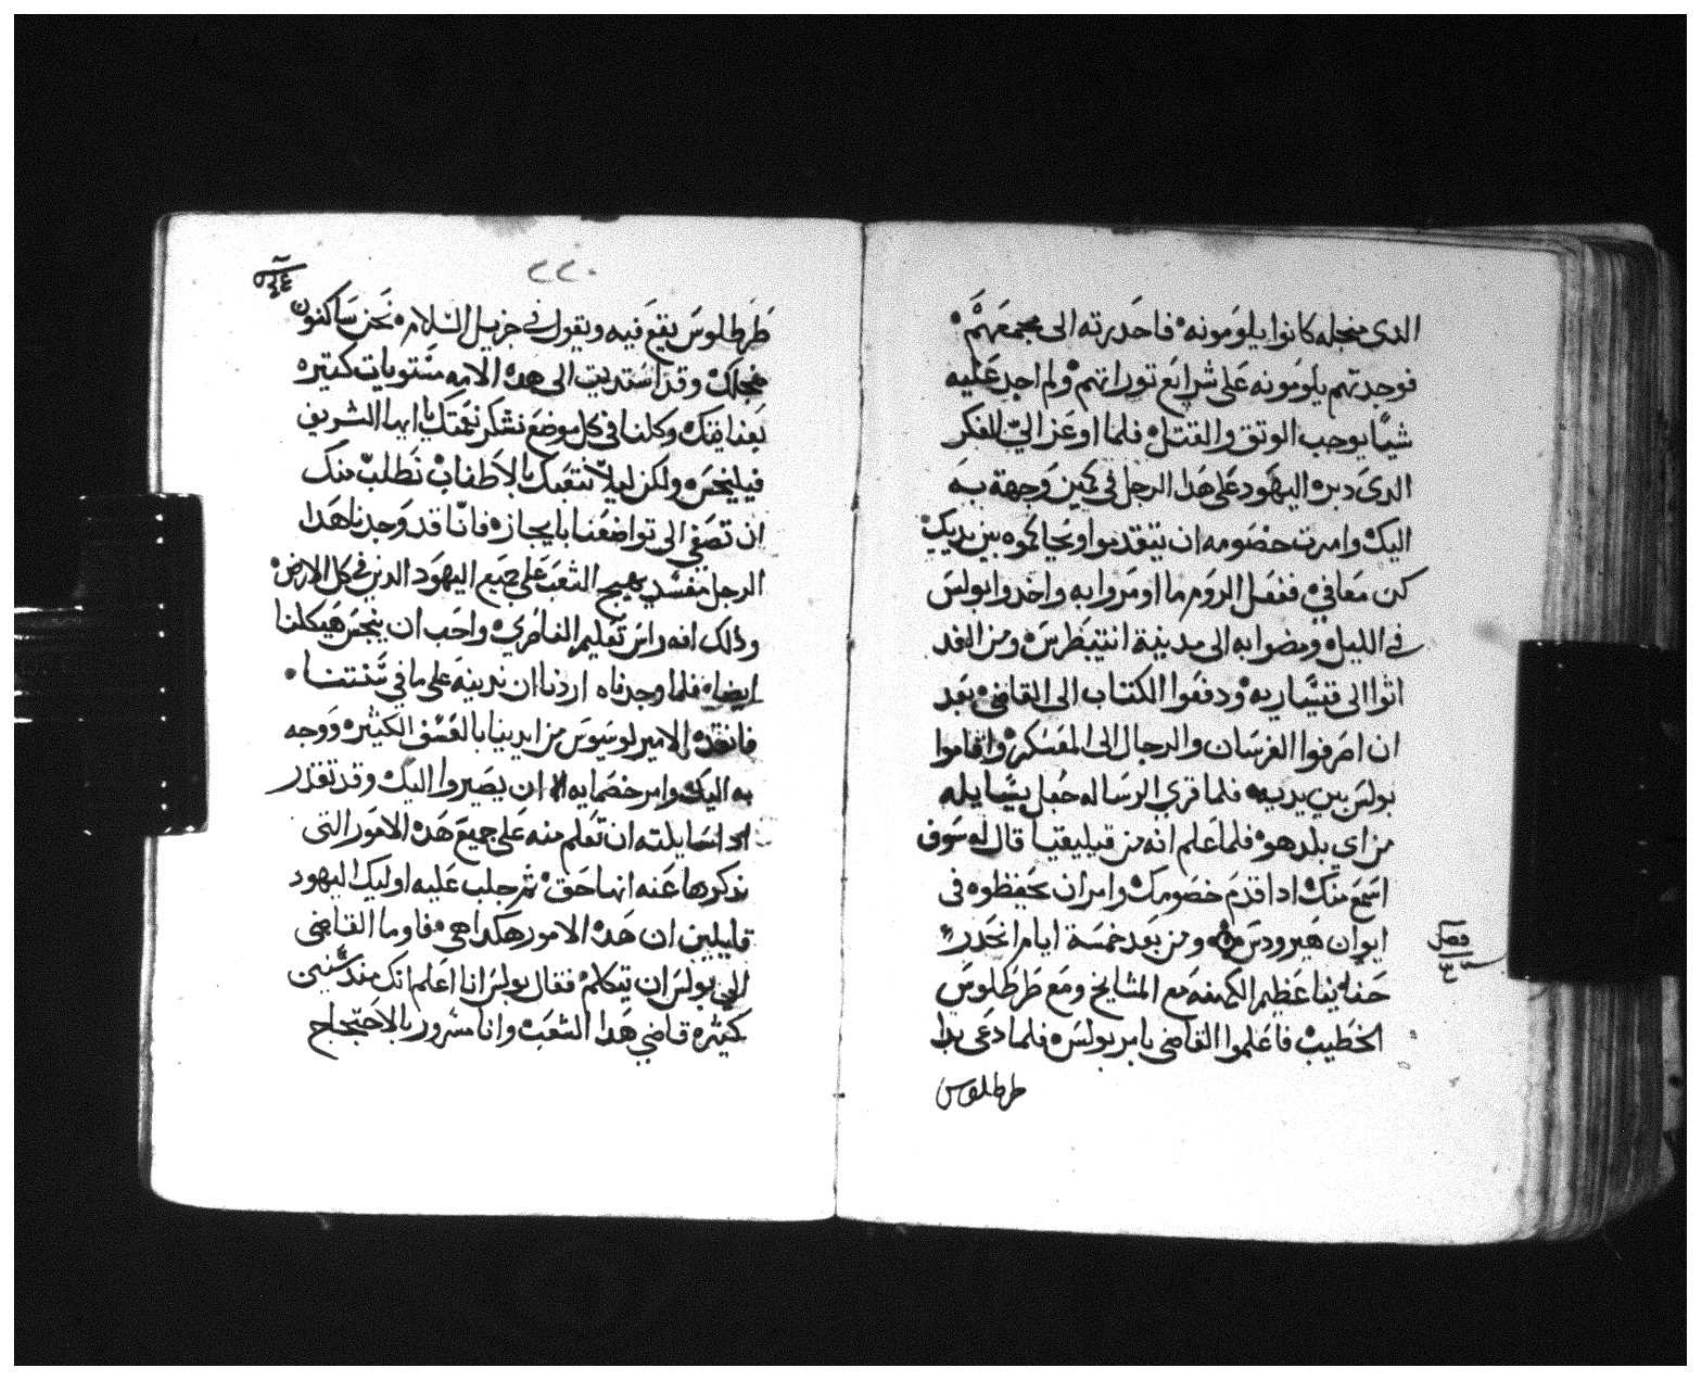 الدى منجله كانوا يلومونه فاحدرته الى مجمعهم
فوجدتهم يلومونه على شرايع توراتهم ولم اجد عليه
شيا يوجب الوتق والقتل فلما اوعز اليّ للفكر
الدى دبره اليهود على هدا الرجل في كمين وجهة به
اليك وامرت خصومه ان يتقدموا ويحاكموه بين يديك
كن معافي ففعل الروم ما اومروا به واخدوا بولس
في الليل ومضوا به الى مدينة انتيبطرس ومن الغد
اتوا الى قيساريه ودفعوا الكتاب الى القاضي بعد
ان اصرفوا الفرسان والرجال الى المعسكر واقاموا
بولس بين يديه فلما قري الرساله جعل يسايله
من اي بلد هو فلما علم انه من قيليقيا قال له سوف
اسمع منك ادا قدم خصومك وامر ان يحفظوه فى
ايوان هيرودس ومن بعد خمسة ايام انحدر
فصل
٣٤
حنانيا عظيم الكهنه مع المشايخ ومع طرطلوس
الخطيب فاعلموا القاضي بامر بولس فلما دعى بدا
طرطلوس
٢٢٠
طرطلوس يقع فيه ويقول في جزيل السلامه نحن ساكنون
منجلك وقد استديت الى هده الامه مستويات كتيره
بعنايتك وكلنا في كل موضع نشكر نعمتك يا ايها الشريف
فيليخس ولكن ليلا نتعبك بالاطناب نطلب منك
ان تصغي الى تواضعنا بايجازه فانا قد وجدنا هدا
الرجل مفسد يهيج الشعب على جميع اليهود الدين في كل الارض
ودلك انه راس تعليم الناصري واحب ان ينجس هيكلنا
ايضا فلما وجدناه اردنا ان ندينه على ما في سنتنا
فانقده الامير لوسيوس من ايدينا بالعسف الكثيره ووجه
به اليك وامر خصمايه ان يصيروا اليك وقد تقدر
ادا سايلته ان تعلم منه على جميع هده الامور التى
ندكرها عنه انها حق ثم جلب عليه اوليك اليهود
قايلين ان هده الامور هكدا هي فاوما القاضي
الى بولس ان يتكلم فقال بولس انا اعلم انك مند سنين
كثيره قاضي هدا الشعب وانا مسرور بالاحتجاج